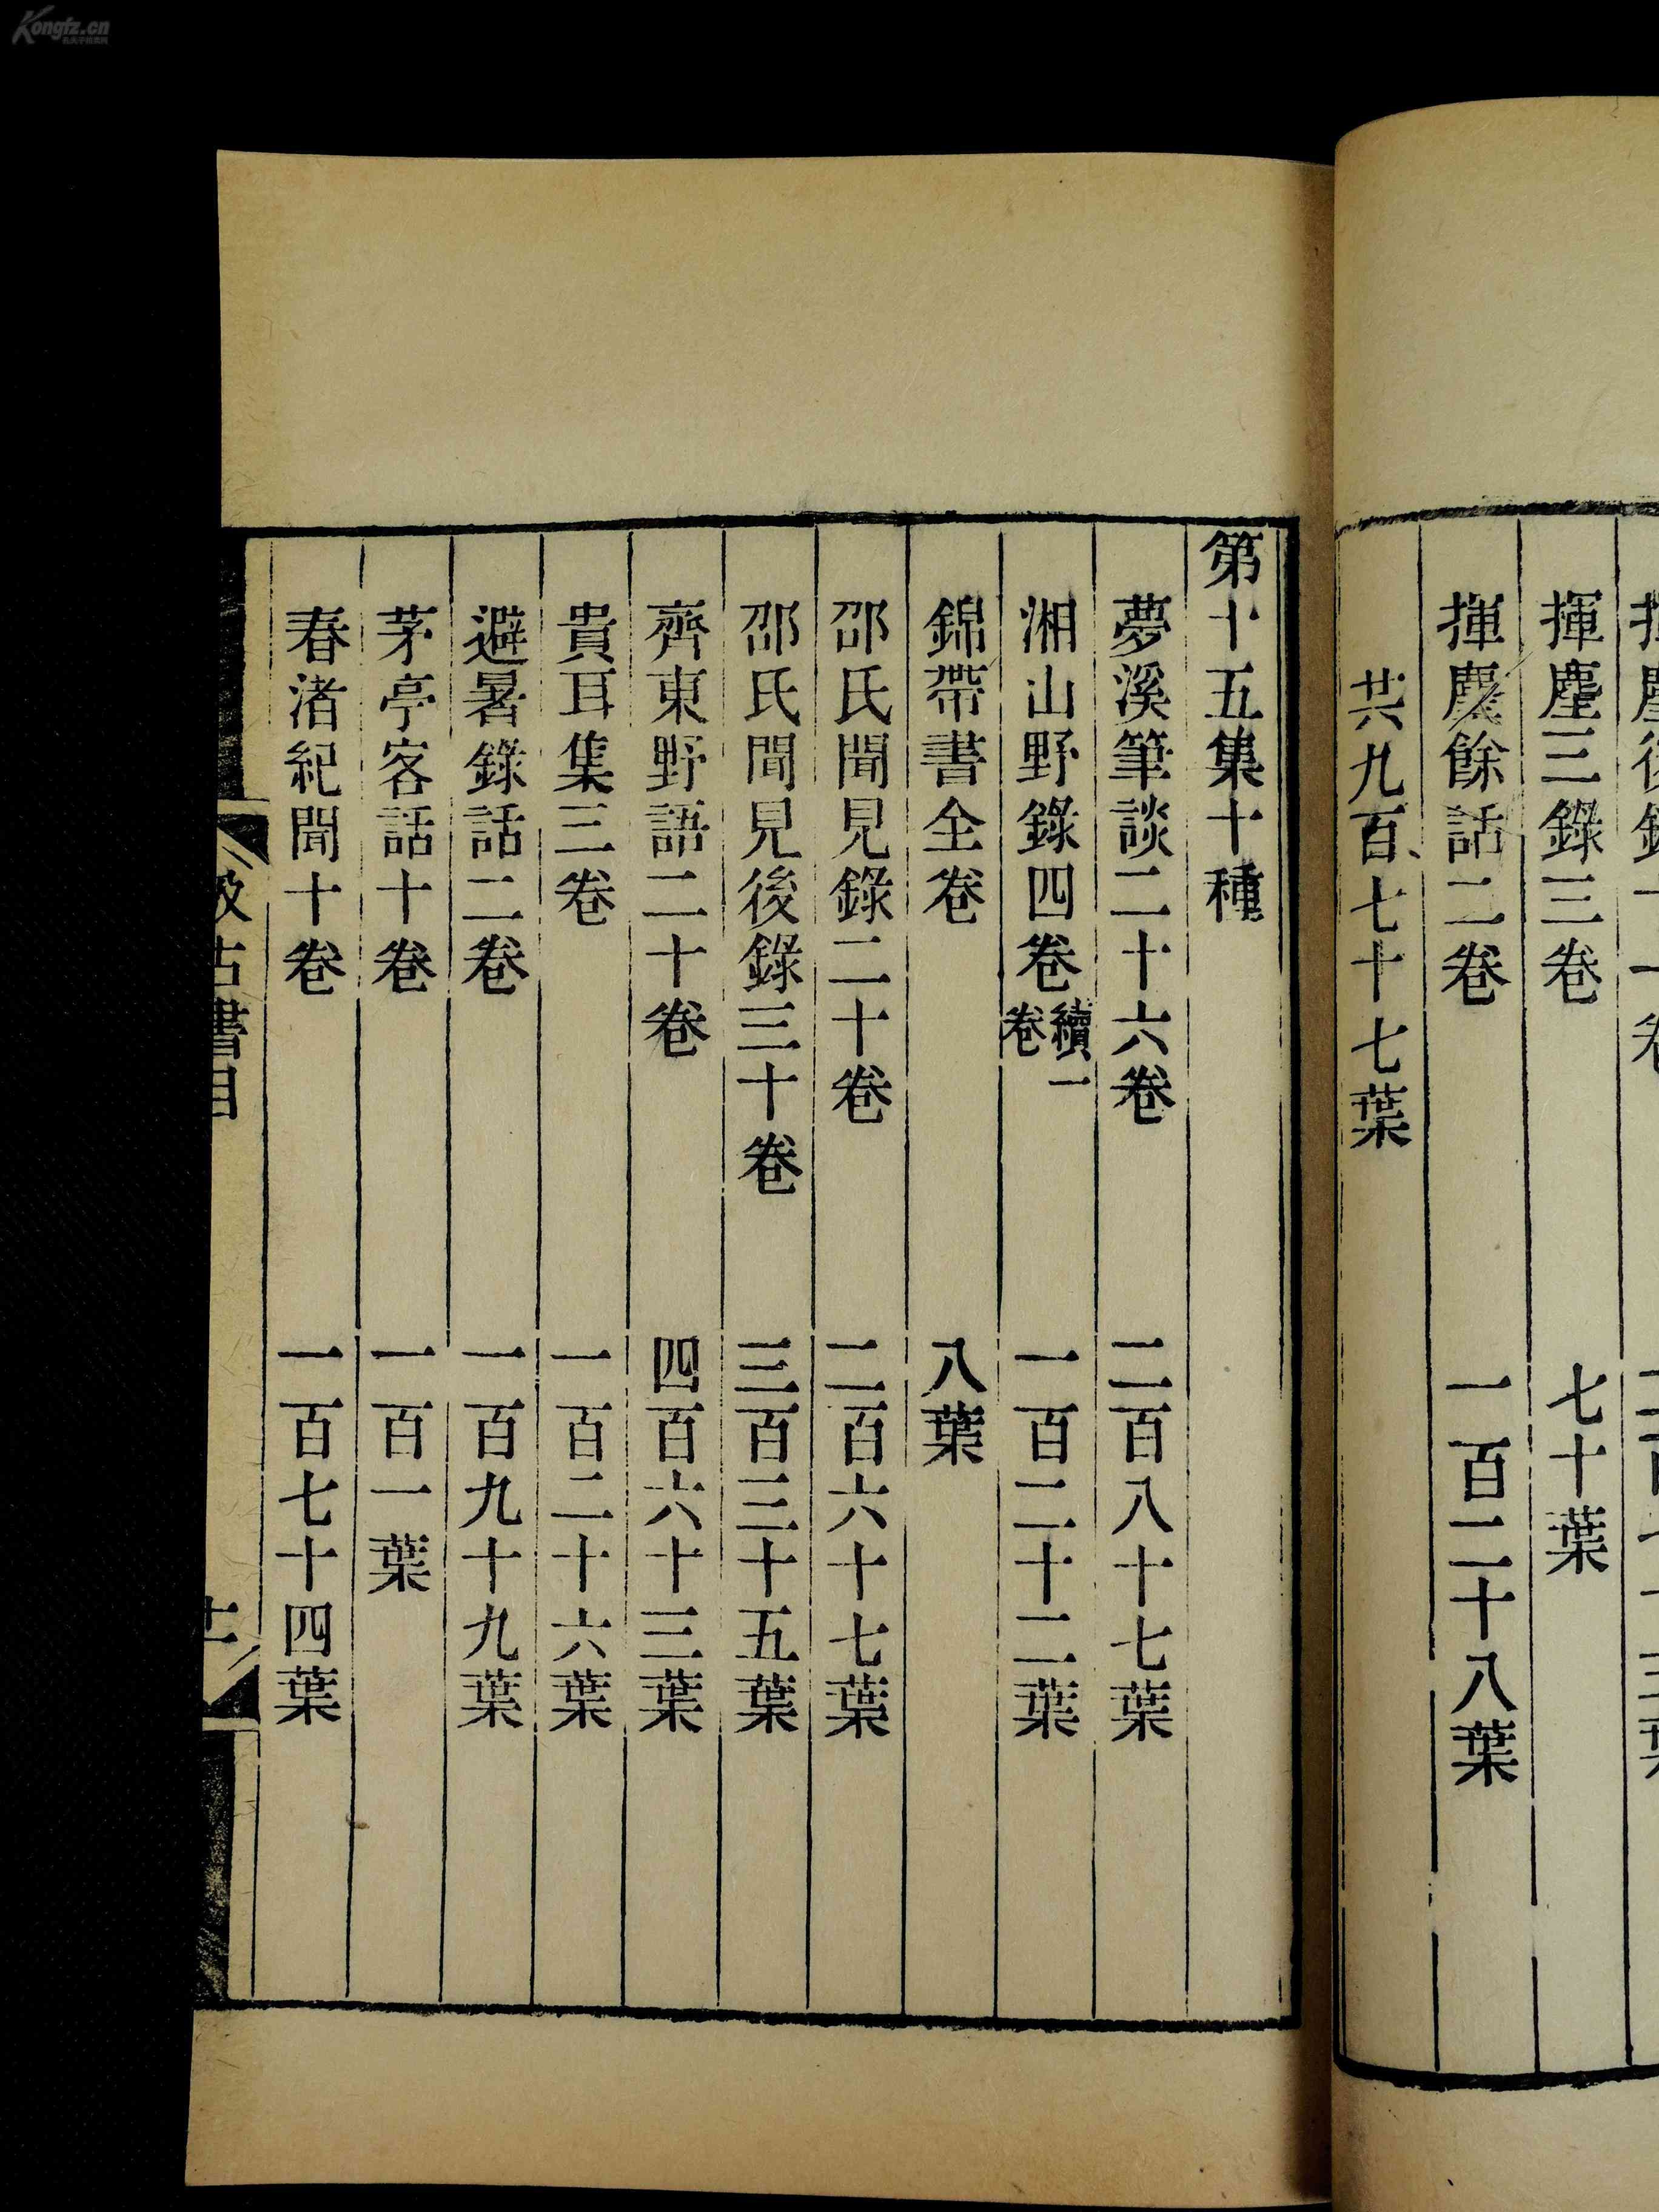 揮塵三錄三卷 七十葉
揮塵餘話二卷 一百二十八葉
共九百七十七葉
第十五集十種
夢溪筆談二十六卷 二百八十七葉
湘山野錄四卷續一卷 一百二十二葉
錦帶書全卷 八葉
邵氏聞見錄二十卷 二百六十七葉
邵氏聞見後錄三十卷 三百三十五葉
齊東野語二十卷 四百六十三葉
貴耳集三卷 一百二十六葉
避暑錄話二卷 一百九十九葉
茅亭客話十卷 一百一葉
春渚紀聞十卷 一百七十四葉
汲古書目
十一
Kongfz.cn